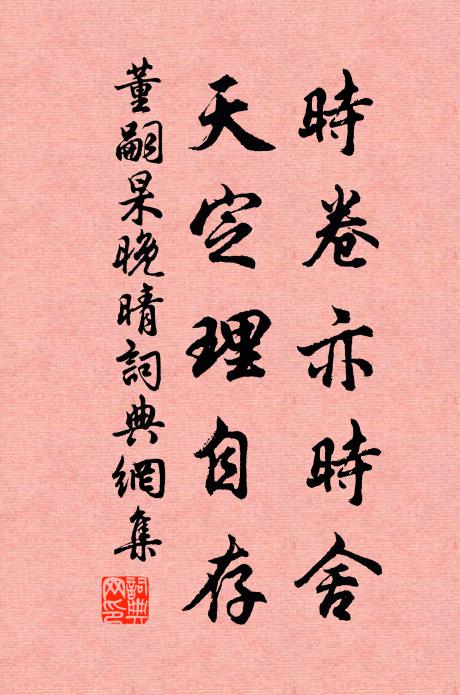 時卷亦時舍
天定理自存
董嗣杲晚晴詞典網集
詞典網印